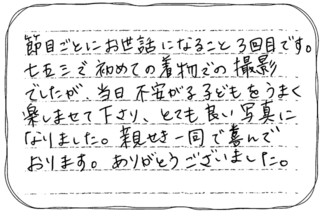 節目ごとにお世話になること3回目です。
七五三で初めての着物での撮影
でしたが、当日不安がる子どもをうまく
楽しませて下さり、とても良い写真に
なりました。親せき一同で喜んで
おります。ありがとうございました。